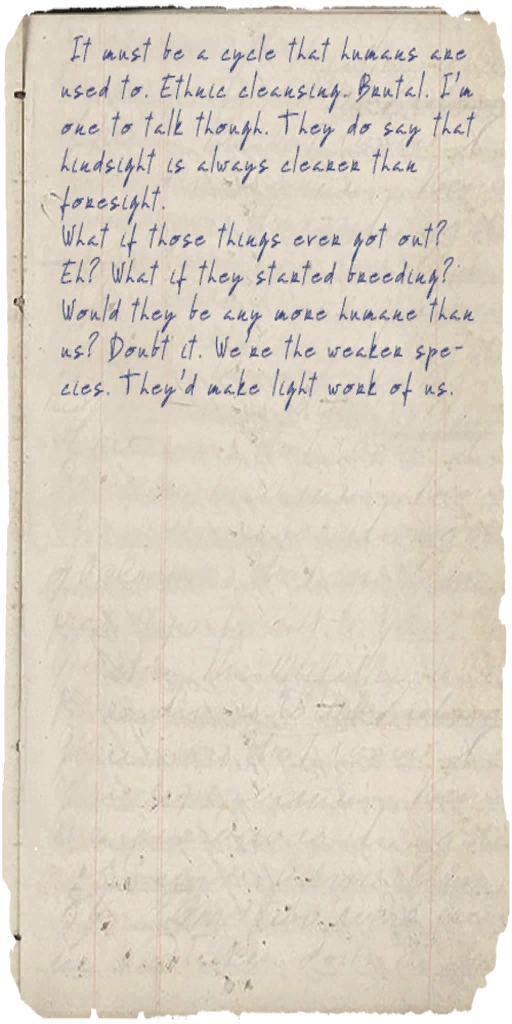 It must be a cycle that humans are
used to. Ethnic cleansing. Brutal. I'm
one to talk though. They do say that
hindsight is always clearer than
foresight.
What if those things ever got out?
Eh? What if they started breeding?
Would they be any more humane than
us? Doubt it. We're the weaker spe-
cies. They'd make light work of us.